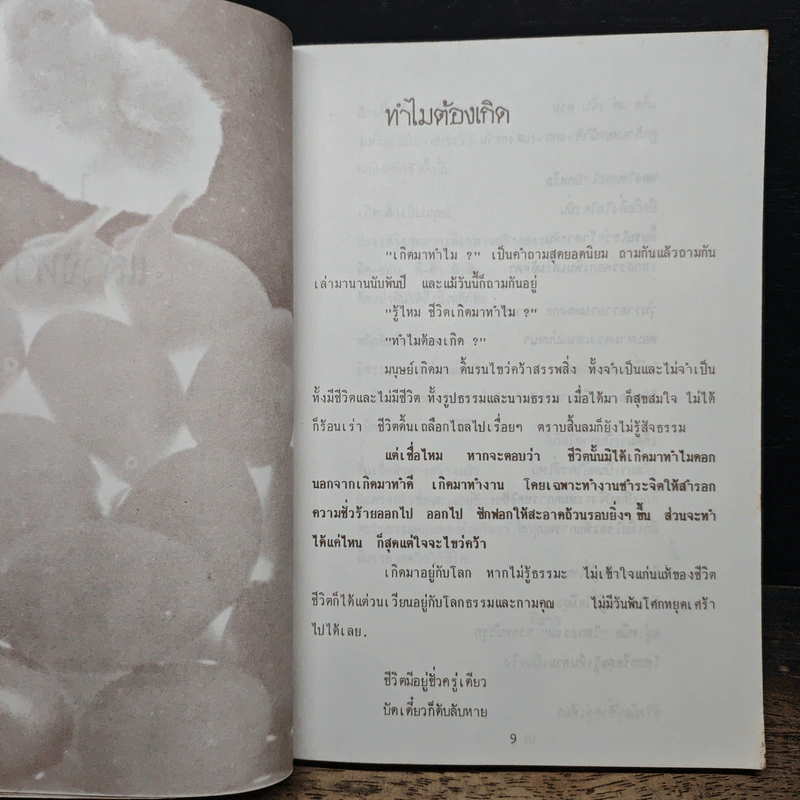 ทำไมต้องเกิด
"เกิดมาทำไม ?" เป็นคำถามสุดยอดนิยม ถามกันแล้วถามกัน
เล่ามานานนับพันปี และแม้วันนี้ก็ถามกันอยู่
"รู้ไหม ชีวิตเกิดมาทำไม ?"
"ทำไมต้องเกิด ?"
มนุษย์เกิดมา ดิ้นรนไขว่คว้าสรรพสิ่ง ทั้งจำเป็นและไม่จำเป็น
ทั้งมีชีวิตและไม่มีชีวิต ทั้งรูปธรรมและนามธรรม เมื่อได้มา ก็สุขสมใจ ไม่ได้
ก็ร้อนเร่า ชีวิตดิ้นเถลือกไถลไปเรื่อยๆ ตราบสิ้นลมก็ยังไม่รู้สัจธรรม
แต่เชื่อไหม หากจะตอบว่า ชีวิตนั้นมิได้เกิดมาทำไมดอก
นอกจากเกิดมาทำดี เกิดมาทำงาน โดยเฉพาะทำงานชำระจิตให้สำรอก
ความชั่วร้ายออกไป ออกไป ซักฟอกให้สะอาดถ้วนรอบยิ่งๆ ขึ้น ส่วนจะทำ
ได้แค่ไหน ก็สุดแต่ใจจะไขว่คว้า
เกิดมาอยู่กับโลก หากไม่รู้ธรรมะ ไม่เข้าใจแก่นแท้ของชีวิต
ชีวิตก็ได้แต่วนเวียนอยู่กับโลกธรรมและกามคุณ ไม่มีวันพ้นโศกหยุดเศร้า
ไปได้เลย.
ชีวิตมีอยู่ชั่วครู่เดียว
บัดเดี๋ยวก็ดับลับหาย
9